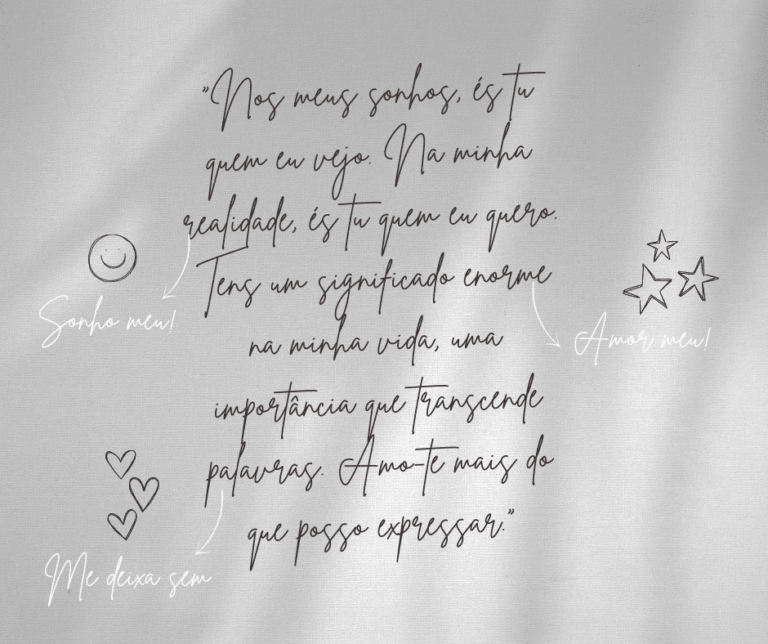 "Nos meus sonhos, és tu
quem eu vejo. Na minha
realidade, és tu quem eu quero.
Tens um significado enorme
na minha vida, uma
importância que transcende
palavras. Amo-te mais do
que posso expressar."
Sonho meu!
Amor meu!
Me deixa sem